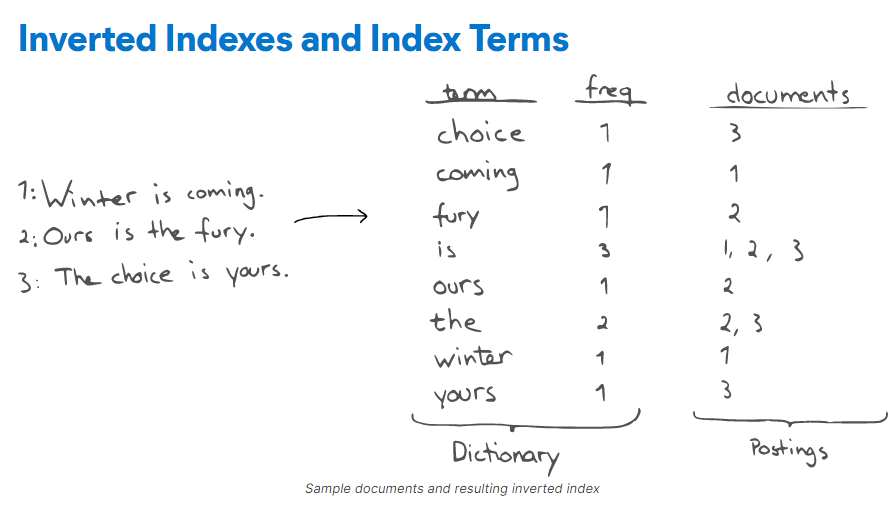 Inverted Indexes and Index Terms
1: Winter is coming.
2: Ours is the fury.
3: The choice is yours.
term freq documents
choice 1 3
coming 1 1
fury 1 2
is 3 1, 2, 3
ours 1 2
the 2 2, 3
winter 1 1
yours 1 3
Dictionary Postings
Sample documents and resulting inverted index